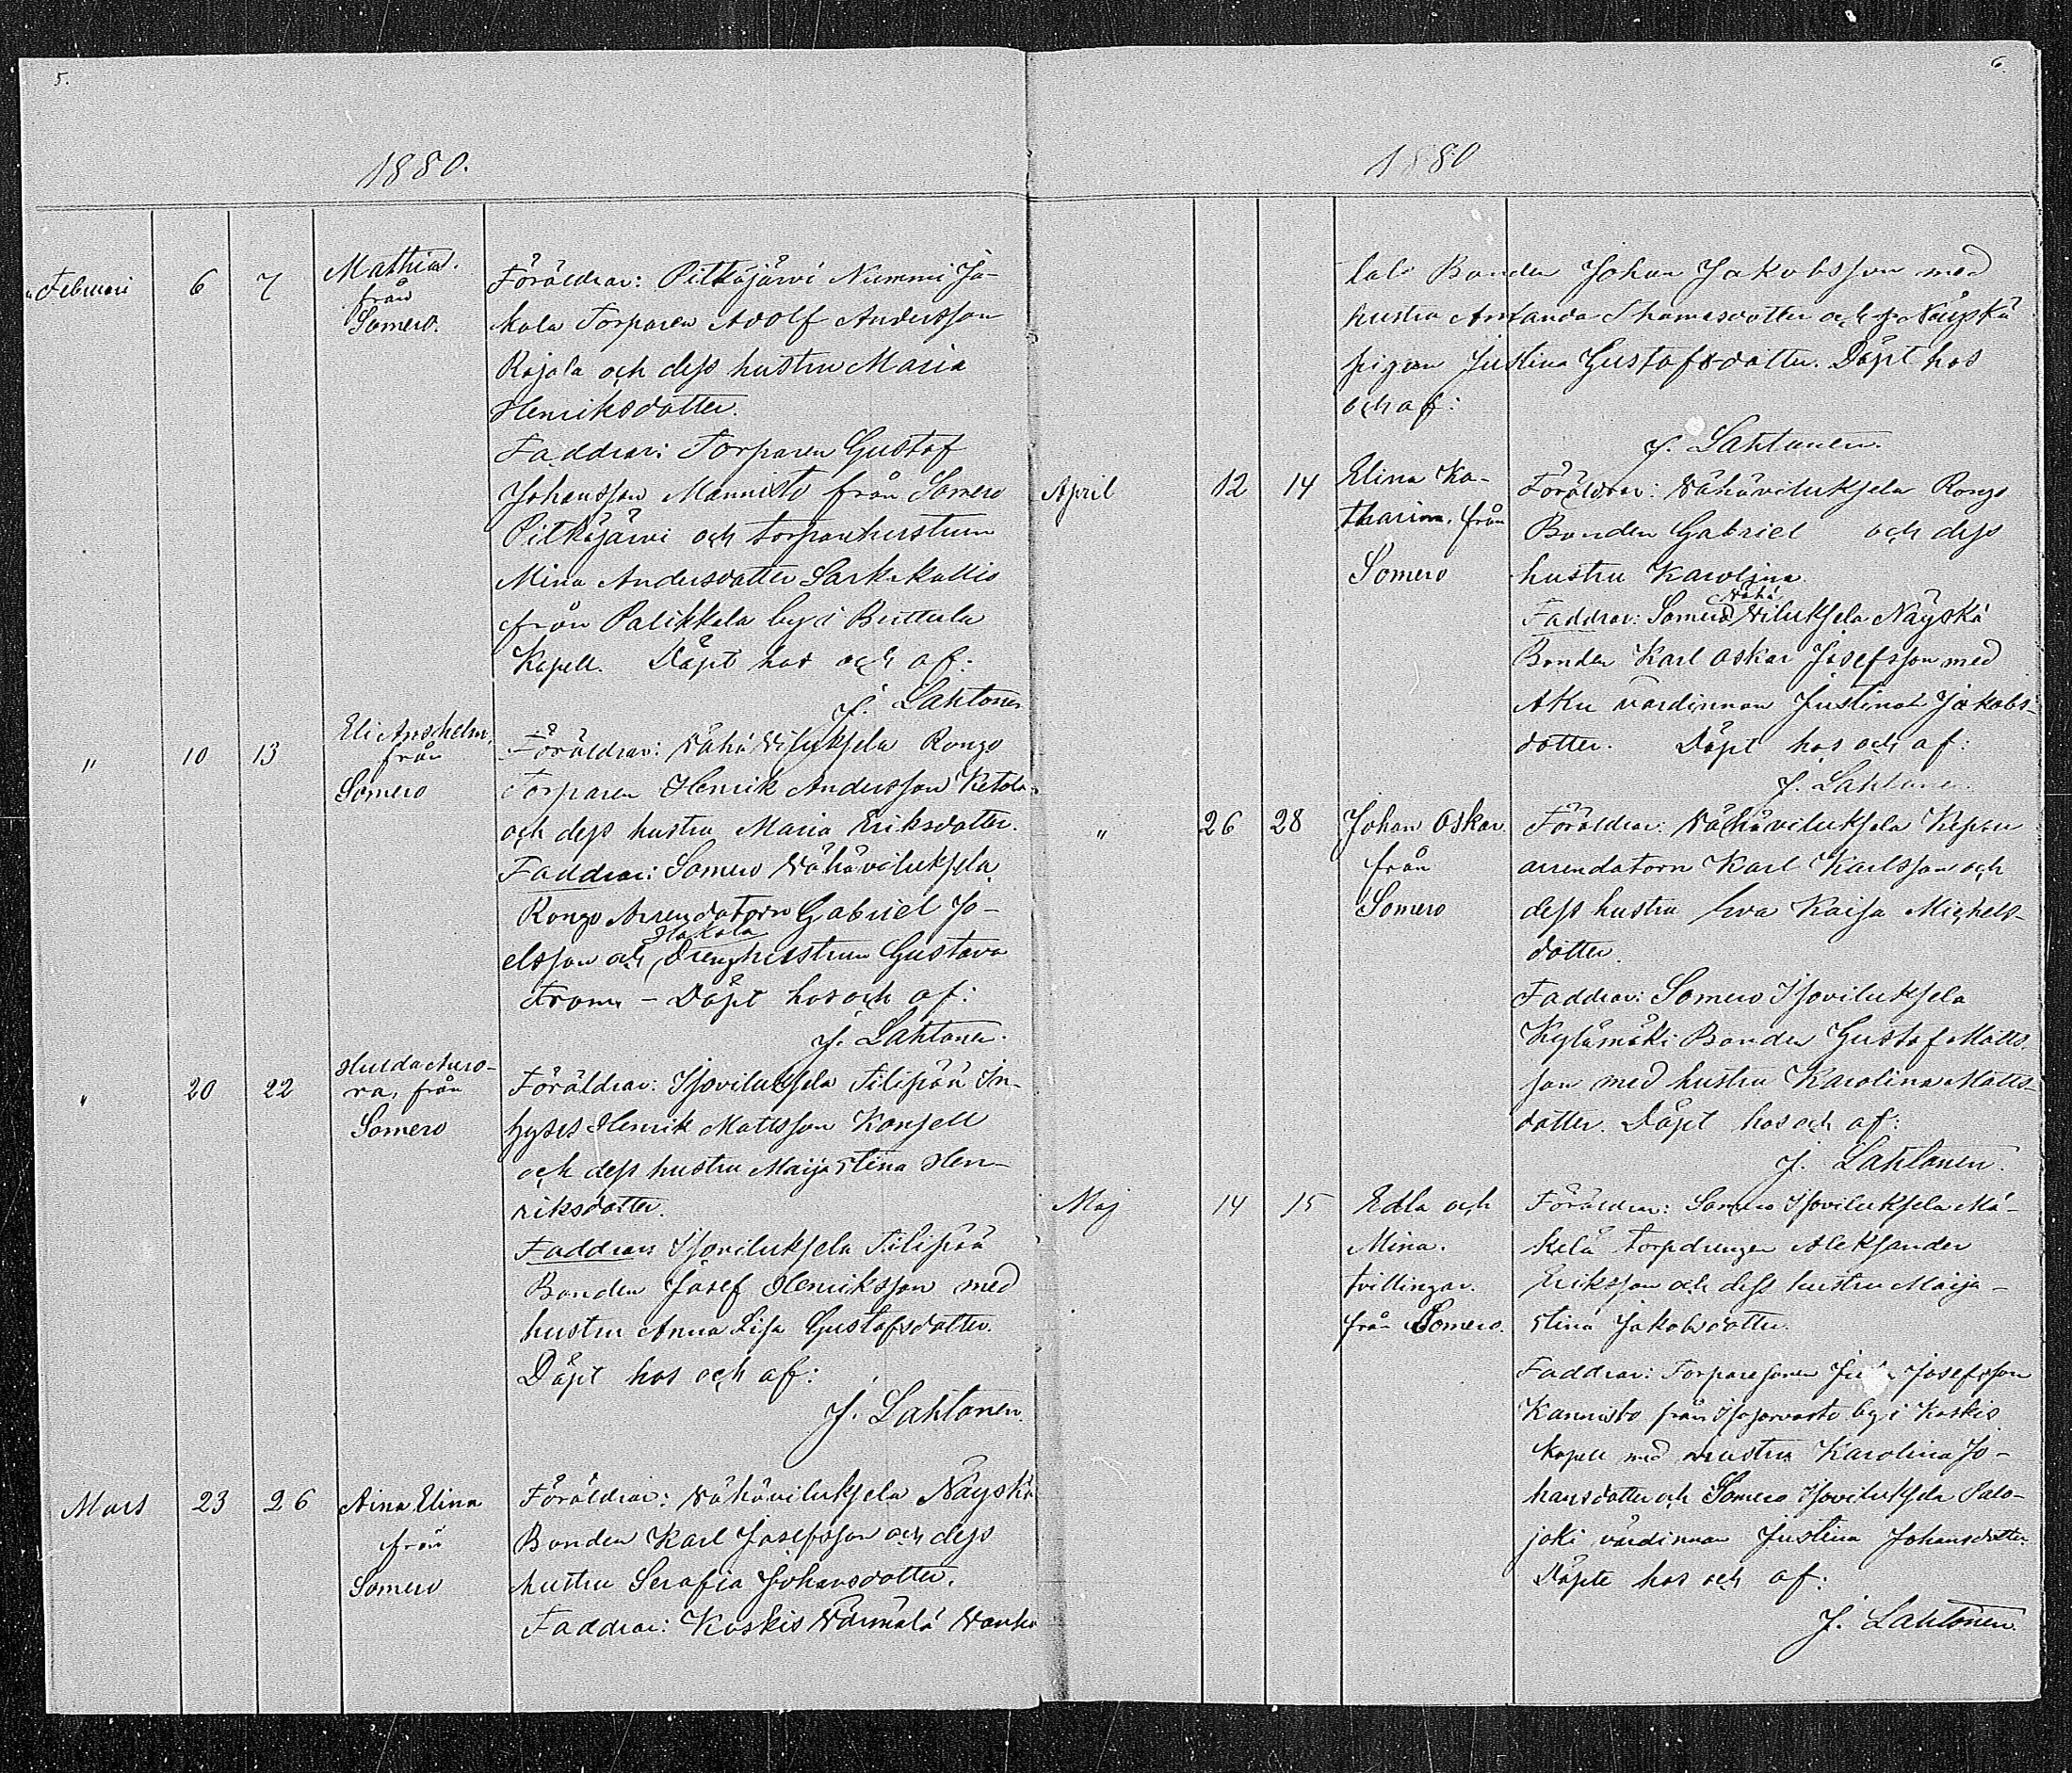 5.
1880.
Februari 6 7 Mathias.
från
Somero.
Föräldrar: Pitkäjärvi Nummi Ja-
kala Torparen Adolf Andersson
Rajala och dess hustru Maria
Henriksdotter.
Faddrar: Torparen Gustaf
Johansson Mannisto från Somero
Pitkäjärvi och torparhustrun
Mina Andersdotter Sarkkallio
från Palikkala by i
Kapell. Döpt hos och af:
J. Lahtonen
" 10 13 Eli Anshelm,
från
Somero
Föräldrar: Vähäviluksela Rongo
Torparen Henrik Andersson Ketola
och dess hustru Maria Eriksdotter.
Faddrar: Somero Vähäviluksela
Rongo Arrendatorn Gabriel Jo-
Hakala
elsson och drenghustrun Gustava
From – Döpt hos och af:
J. Lahtonen.
" 20 22 Hulda Auro-
ra, från
Somero
Föräldrar: Isoviluksela Filipää In-
hyses Henrik Mattsson Konsell
och dess hustru Maija Stina Hen-
riksdotter.
Faddrar: Isoviluksela Filipää
Bonden Josef Henriksson med
hustru Anna Lisa Gustafsdotter.
Döpt hos och af:
J. Lahtonen.
Mars 23 26 Aina Elina
från
Somero
Föräldrar: Vähäviluksela Näyskä
Bonden Karl Josefsson och dess
hustru Serafia Johansdotter.
Faddrar: Koskis Värmälä
6.
1880
Bonden Johan Jakobsson med
hustru Amanda Thomasdotter och Näyskä
pigan Justina Gustafsdotter. Döpt hos
och af:
J. Lahtonen.
April 12 14 Elina Ka-
tharina, från
Somero
Föräldrar: Vähäviluksela Rongo
Bonden Gabriel och dess
hustru Karolina
Vähä
Faddrar: Somero Viluksela Näyskä
Bonden Karl Oskar Josefsson med
Aku värdinnan Justina Jakobs-
dotter. Döpt hos och af:
J. Lahtonen.
" 26 28 Johan Oskar.
från
Somero
Föräldrar: Vähäviluksela
arrendatorn Karl Karlsson och
dess hustru Eva Kaisa Michels-
dotter.
Faddrar: Somero Isoviluksela
Kylämäki Bonden Gustaf Matts-
son med hustru Karolina Matts-
dotter. Döpt hos och af:
J. Lahtonen.
Maj 14 15 Edla och
Mina.
tvillingar.
från Somero.
Föräldrar: Somero Isoviluksela Mä-
kelä torpdrengen Aleksander
Eriksson och dess hustru Maija-
stina Jakobsdotter.
Faddrar: Torparesonen Josefsson
Kannisto från by i Koskis
Kapell med hustru Karolina Jo-
hansdotter och Somero Isoviluksela Palo-
joki värdinnan Justina Johansdotter.
Döpte hos och af:
J. Lahtonen.